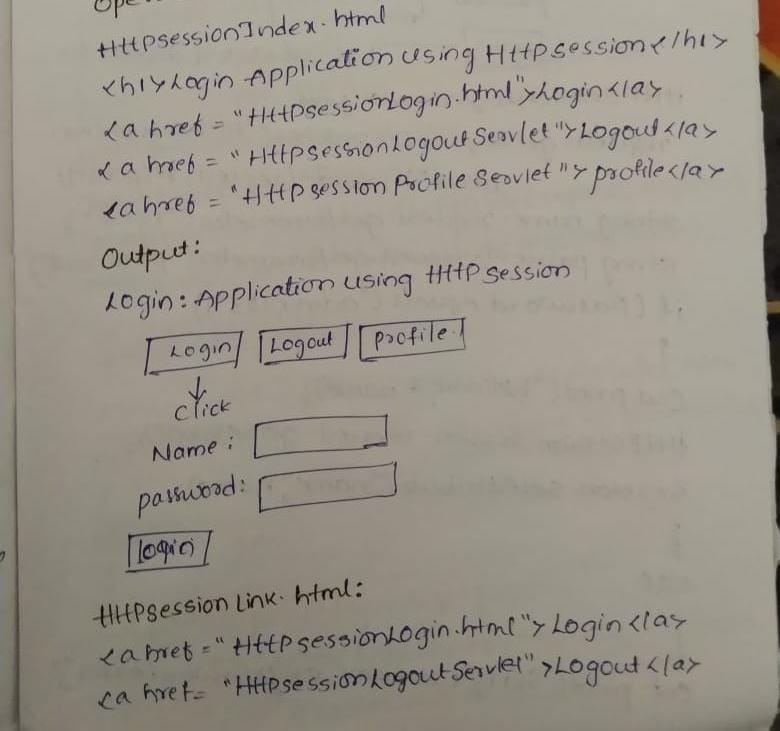 Ope
HttpsessionIndex.html
<h1>Login Application using Httpsession</h1>
<a href = "HttpsessionLogin.html">Login</a>
<a href = "HttpsessionLogoutServlet">Logout</a>
<a href = "Httpsession Profile Servlet">profile</a>
Output:
Login: Application using Httpsession
Login Logout Profile
click
Name:
password:
login
Httpsession Link.html:
<a href = "HttpsessionLogin.html">Login</a>
<a href = "HttpsessionLogoutServlet">Logout</a>